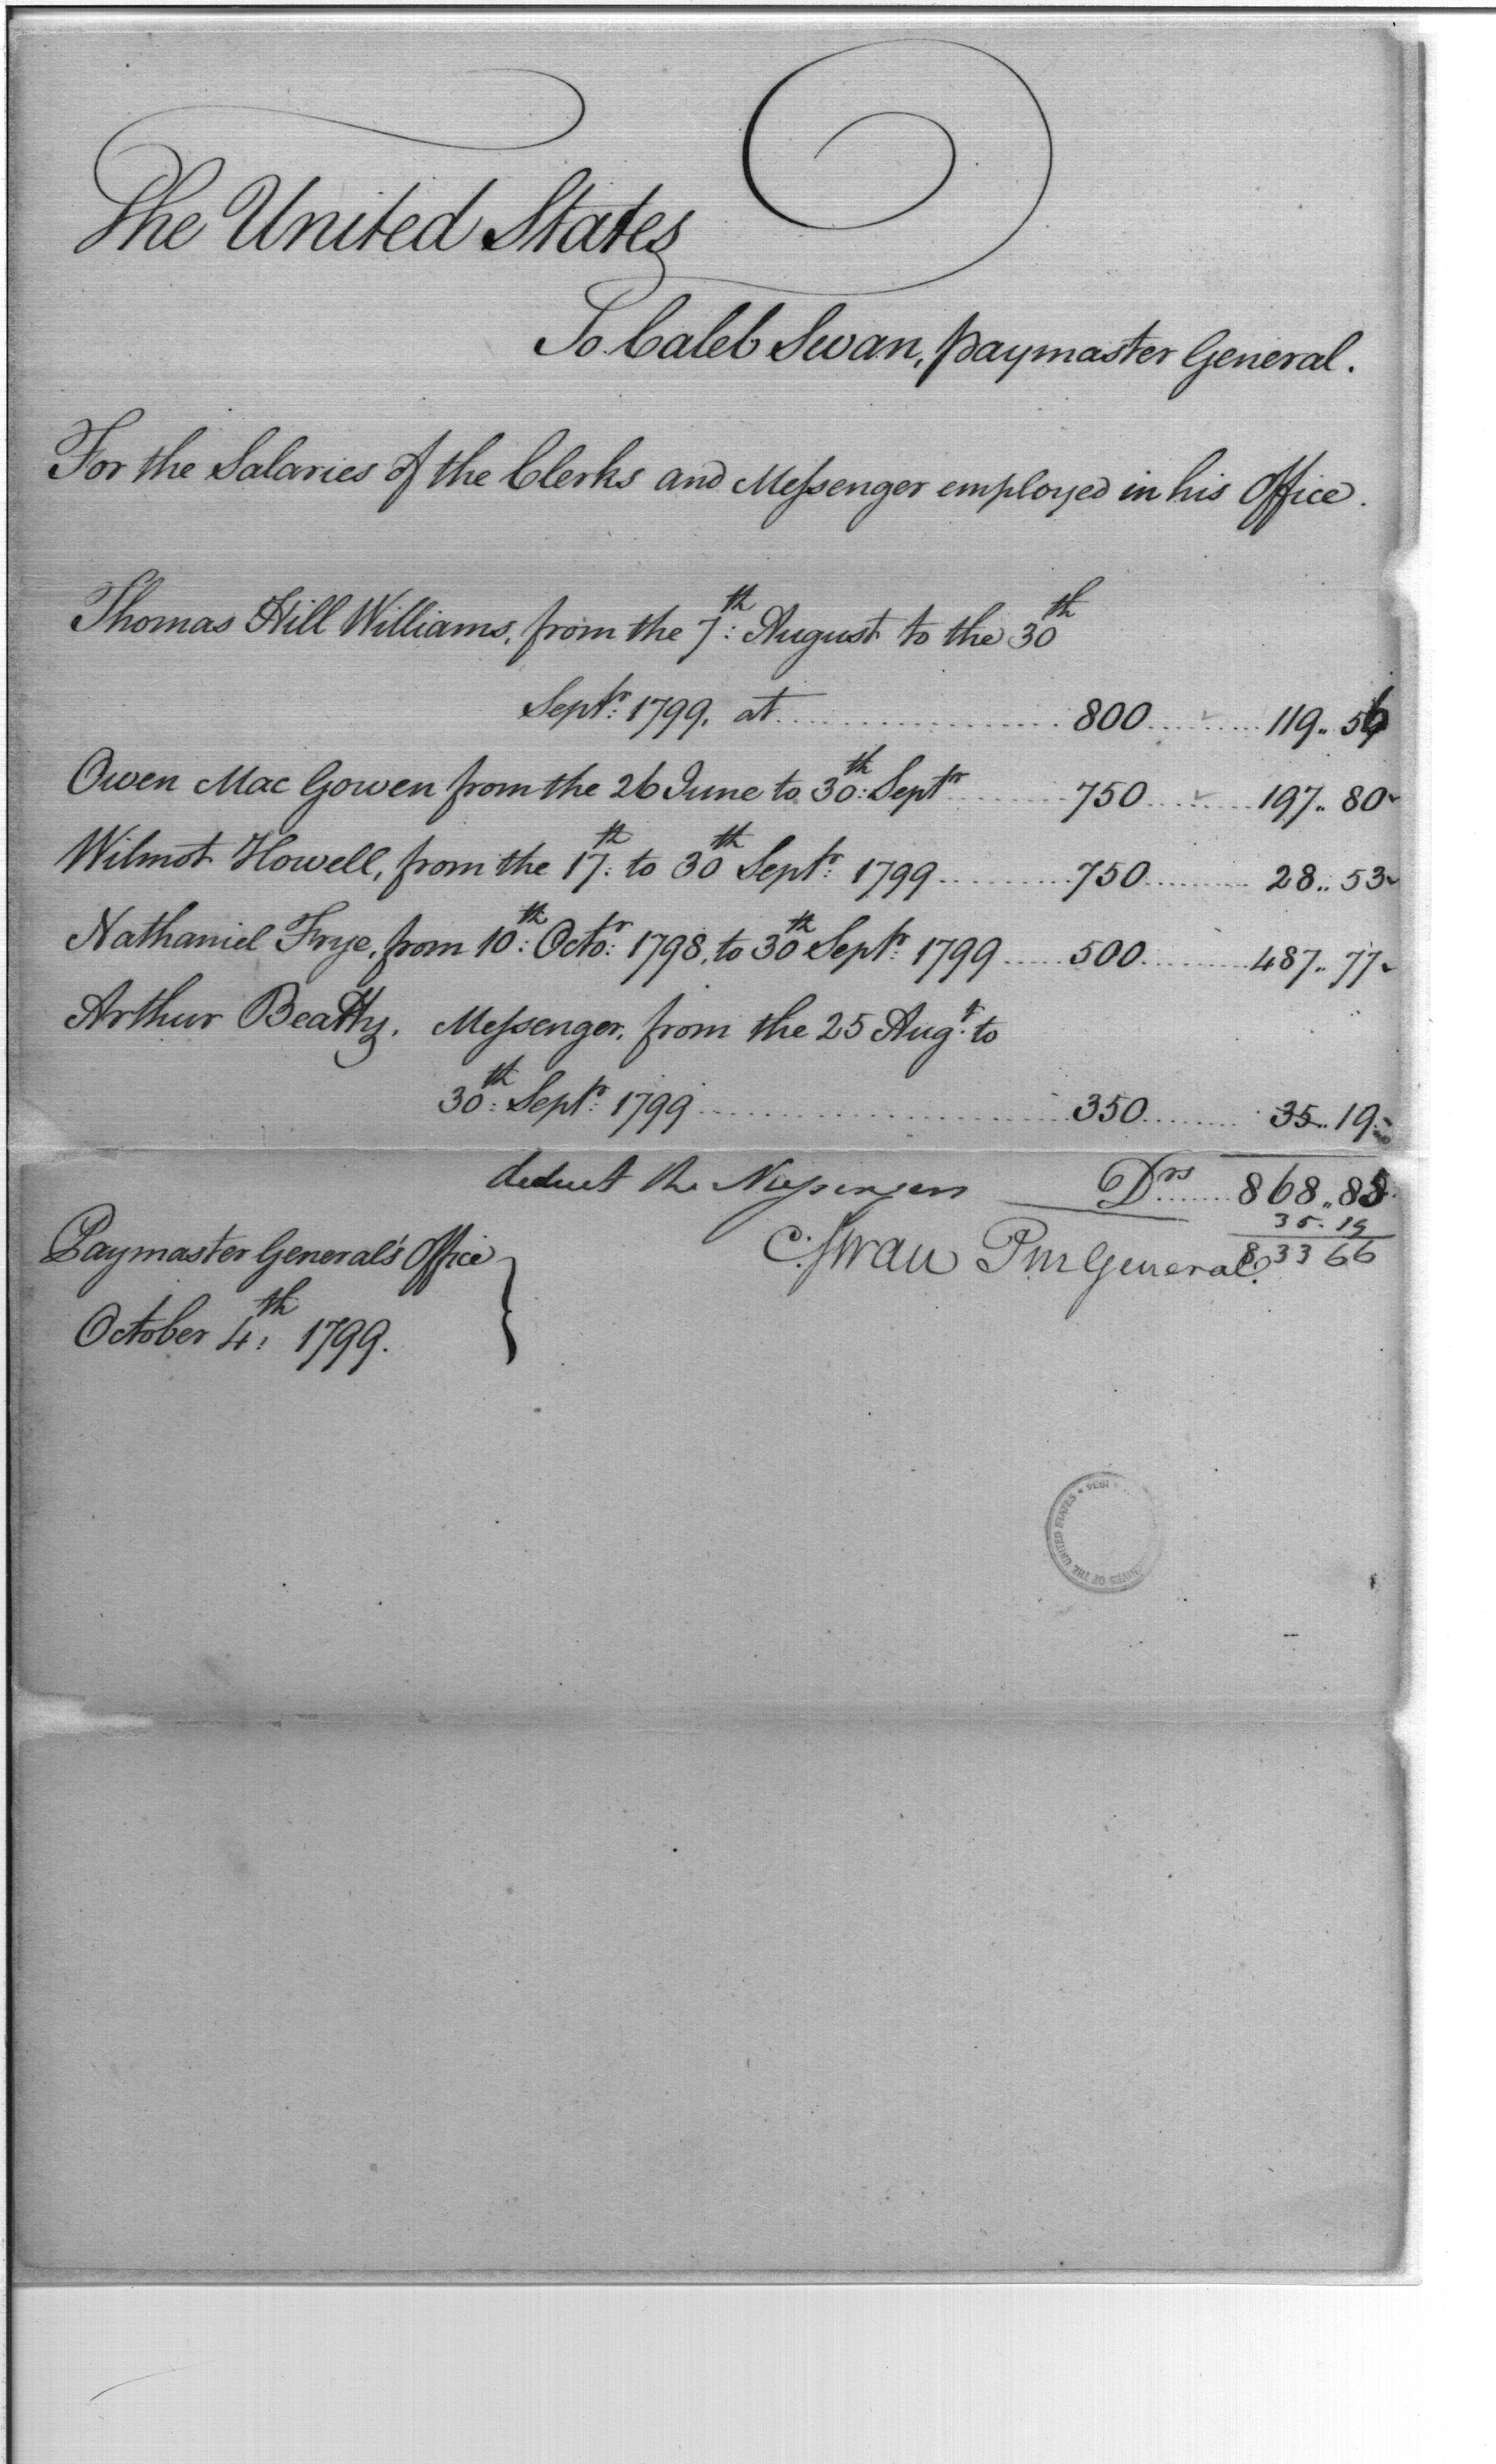 The United States
To Caleb Swan, paymaster General.
For the Salaries of the Clerks and Messenger employed in his Office.
Thomas Hill Williams, from the 7th: August to the 30th
Septr: 1799, at .................... 800 ......... 119.. 56
Owen Mac Gowen from the 26 June to 30th: Septr ........ 750 ........ 197.. 80
Wilmot Howell, from the 17th: to 30th Septr: 1799 ......... 750 ......... 28.. 53
Nathaniel Frye, from 10th: Octor: 1798, to 30th Septr: 1799 ..... 500 ......... 487.. 77
Arthur Beatty, Messenger, from the 25 Augt: to
30th: Septr: 1799 .................... 350 ........ 35.. 19
deduct the Messengers Drs ...... 868.. 85
35. 19
833 66
C. Swan PmGeneral.
Paymaster General's Office
October 4th: 1799.
OF THE UNITED STATES